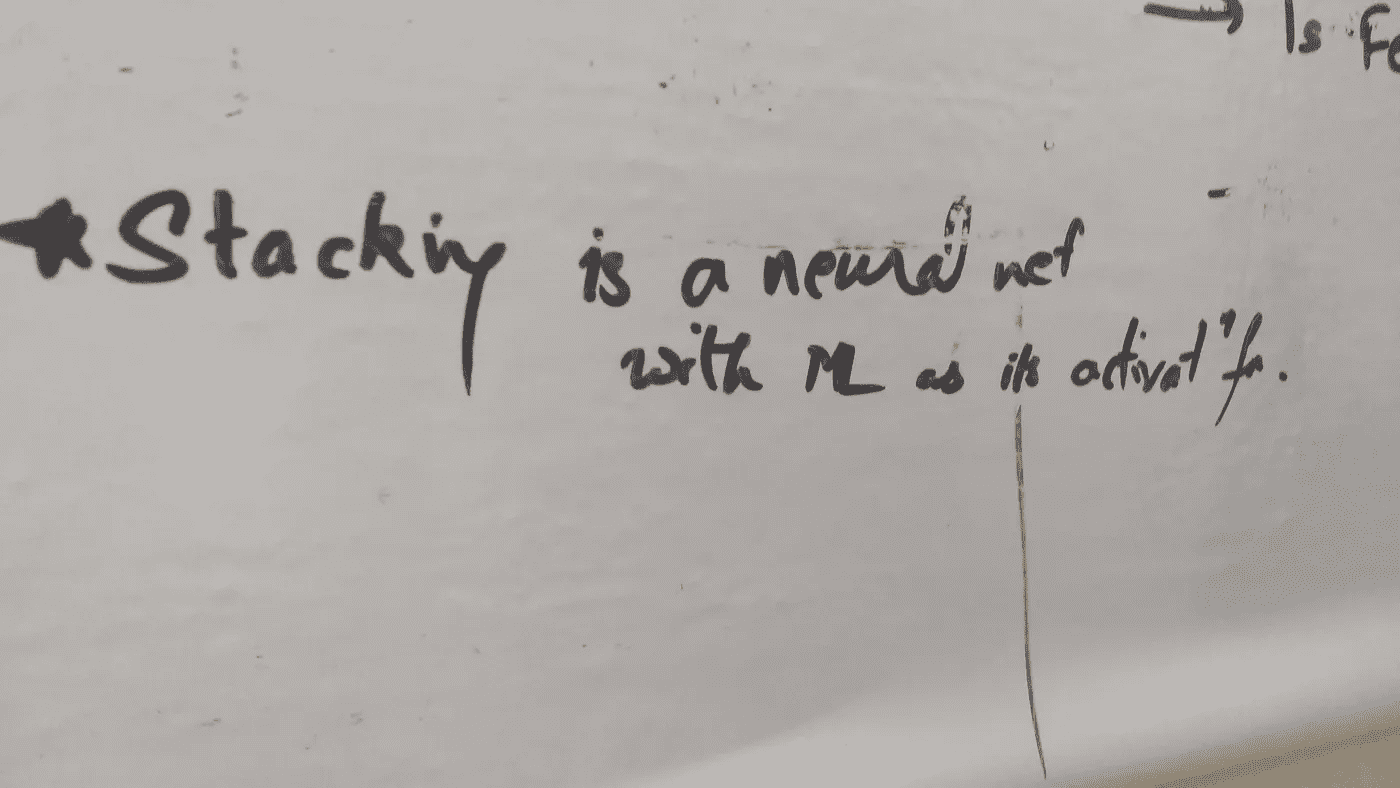 → Is Fe
★ Stacking is a neural net
with ML as its activatⁿ fn.